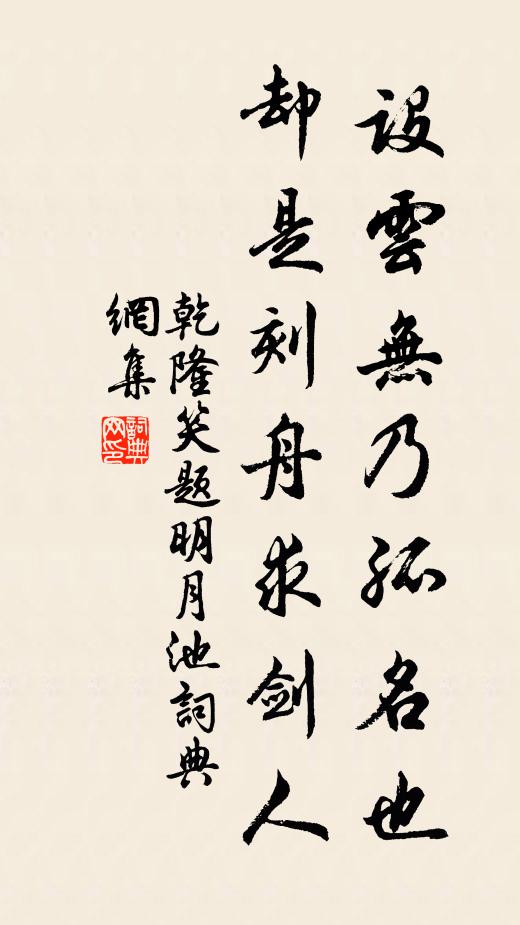 設雲無乃孤名也
却是刻舟求劍人
乾隆笑題明月池詞典
網集
詞典
网印